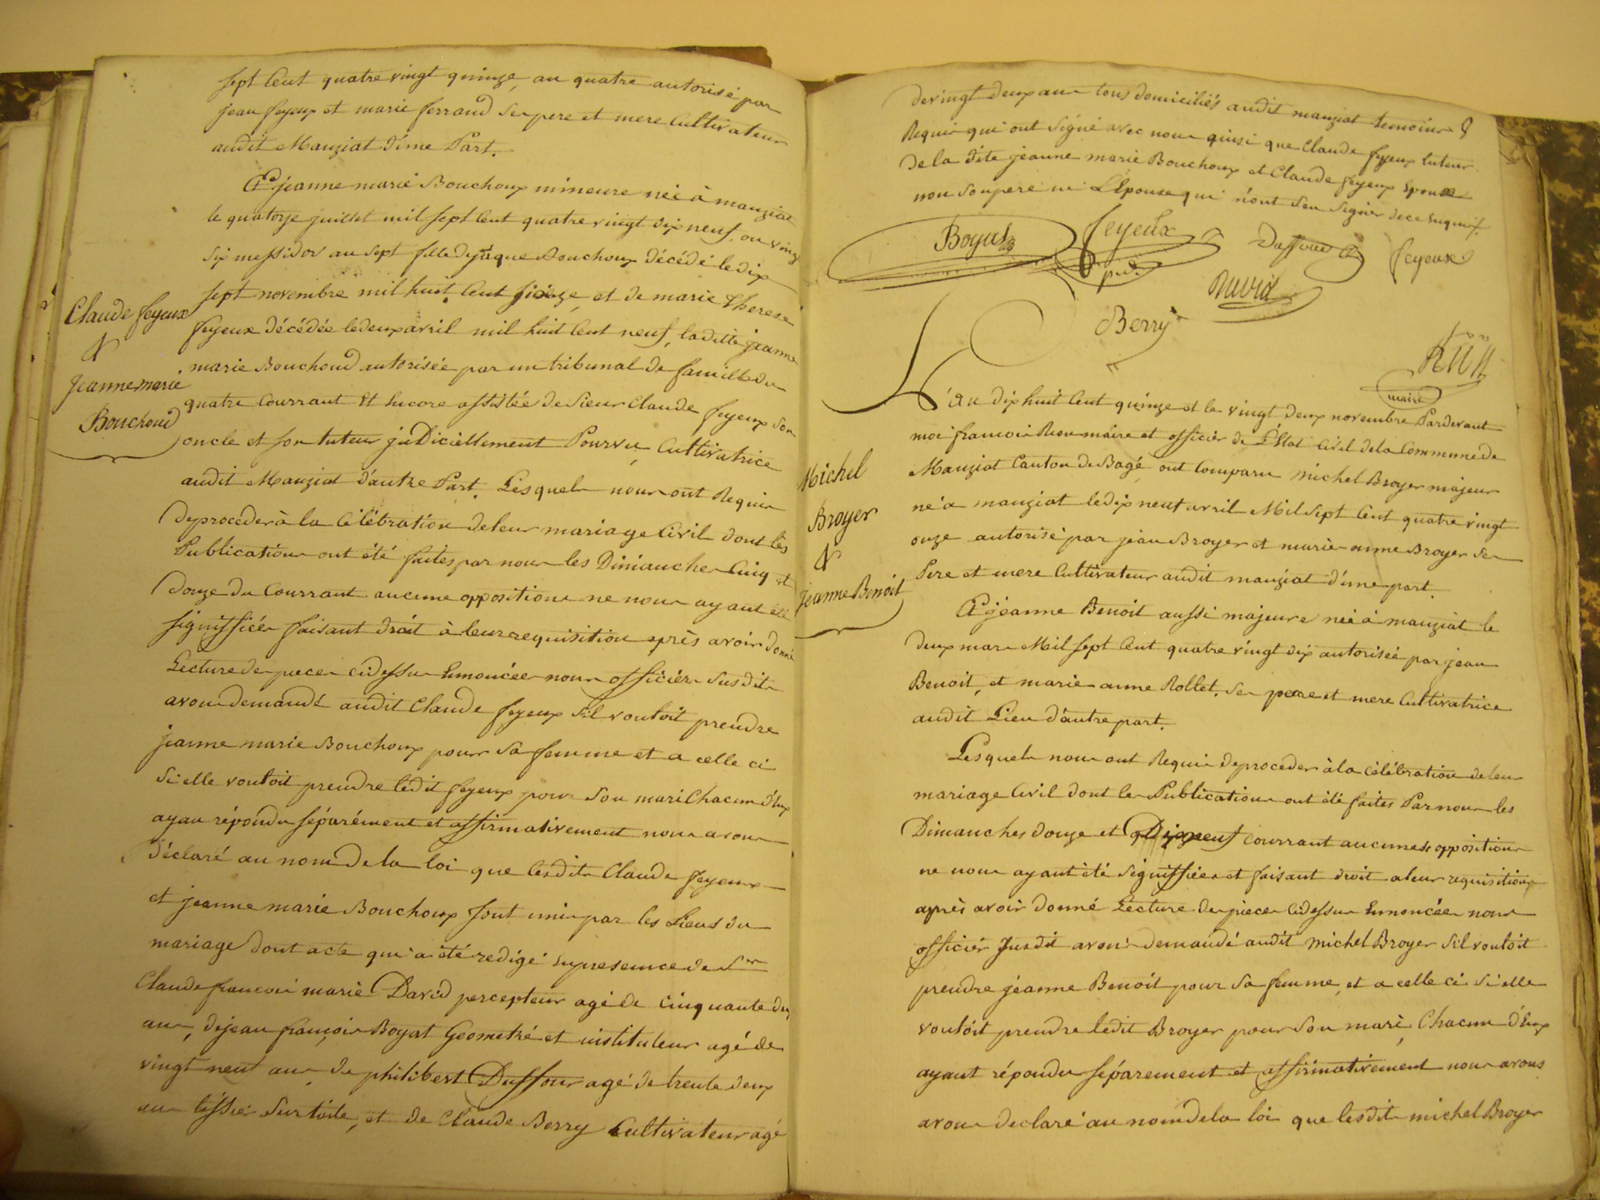 sept Cent quatre vingt quinze, an quatre autorisé par
jean feyeux et marie ferrand Ses pere et mere Cultivateur
audit Manziat d'une Part.
Et jeanne marie Bouchoux mineure née à manziat
le quatorze juillet mil sept Cent quatre vingt dix neuf, ou vingt
six messidor an sept fille de jaque Bouchoux décédé le dix
sept novembre mil huit Cent et de marie therese
feyeux décédée le deux avril mil huit Cent neuf, ladite jeanne
marie Bouchoud autorisée par un tribunal de famille du
quatre Courrant Et Encore assistée de Sieur Claude feyeux son
oncle et son tuteur judiciellement Pourvu, Cultivatrice
audit Manziat d'autre Part. Lesquels nous ont Requis
de proceder à la Célébration de leur mariage Civil dont les
Publications ont été faites par nous les Dimanches Cinq et
Douze du Courrant aucune opposition ne nous ayant été
signiffiée faisant droit à leur requisition après avoir donné
Lecture des pieces cidessus Enoncées nous officier Susdit
avons demandé audit Claude feyeux s'il vouloit prendre
jeanne marie Bouchoux pour Sa femme et a celle ci
Si elle vouloit prendre ledit feyeux pour Son mari Chacun d'Eux
ayan répondu séparément et affirmativement nous avons
déclaré au nom de la loi que lesdits Claude feyeux
et jeanne marie Bouchoux sont unis par les Liens du
mariage dont acte qui a été redigé En presence de Srs
Claude françois marie David percepteur agé de Cinquante deux
ans, de jean françois Boyat Geometre et instituteur agé de
vingt neuf ans, de philibert Duffour agé de trente deux
ans tissier Sur toile, et de Claude Berry Cultivateur agé
Claude feyeux
&
Jeanne marie
Bouchoud
de vingt deux ans tous domiciliés audit manziat temoins
Requis qui ont Signé avec nous ainsi que Claude feyeux tuteur
de la dite jeanne marie Bouchoux et Claude feyeux Epoux
non Son pere ni L'Epouse qui n'ont Seu signer de ce Enquis.
Boyat
feyeux
Duffour
feyeux
David
Berry
maire
L'an dix huit Cent quinze et le vingt deux novembre Pardevant
moi françois maire et officier de L'Etat Civil de la Commune de
Manziat Canton de Bagé, ont Comparu michel Broyer majeur
né a manziat le dix neuf avril Mil Sept Cent quatre vingt
onze autorisé par jean Broyer et marie anne Broyer Ses
Pere et mere Cultivateur audit manziat d'une part.
Et jeanne Benoit aussi majeure née à manziat le
deux mars Mil Sept Cent quatre vingt dix autorisée par jean
Benoit, et marie anne Rollet, Ses pere et mere Cultivatrice
audit Lieu d'autre part.
Lesquels nous ont Requis de proceder à la Célébration de leur
mariage Civil dont les Publications ont été faites Par nous les
Dimanches douze et Dixneuf Courrant aucunes oppositions
ne nous ayant été signiffiées et faisant droit a leur requisition
après avoir donné Lecture des pieces cidessus Enoncées nous
officier Susdit avons demandé audit michel Broyer S'il vouloit
prendre jeanne Benoit pour Sa femme, et a celle ci Si elle
vouloit prendre ledit Broyer pour Son mari, Chacun d'Eux
ayant répondu séparement et affirmativement nous avons
avons declaré au nom de la loi que lesdits michel Broyer
Michel
Broyer
&
Jeanne Benoit